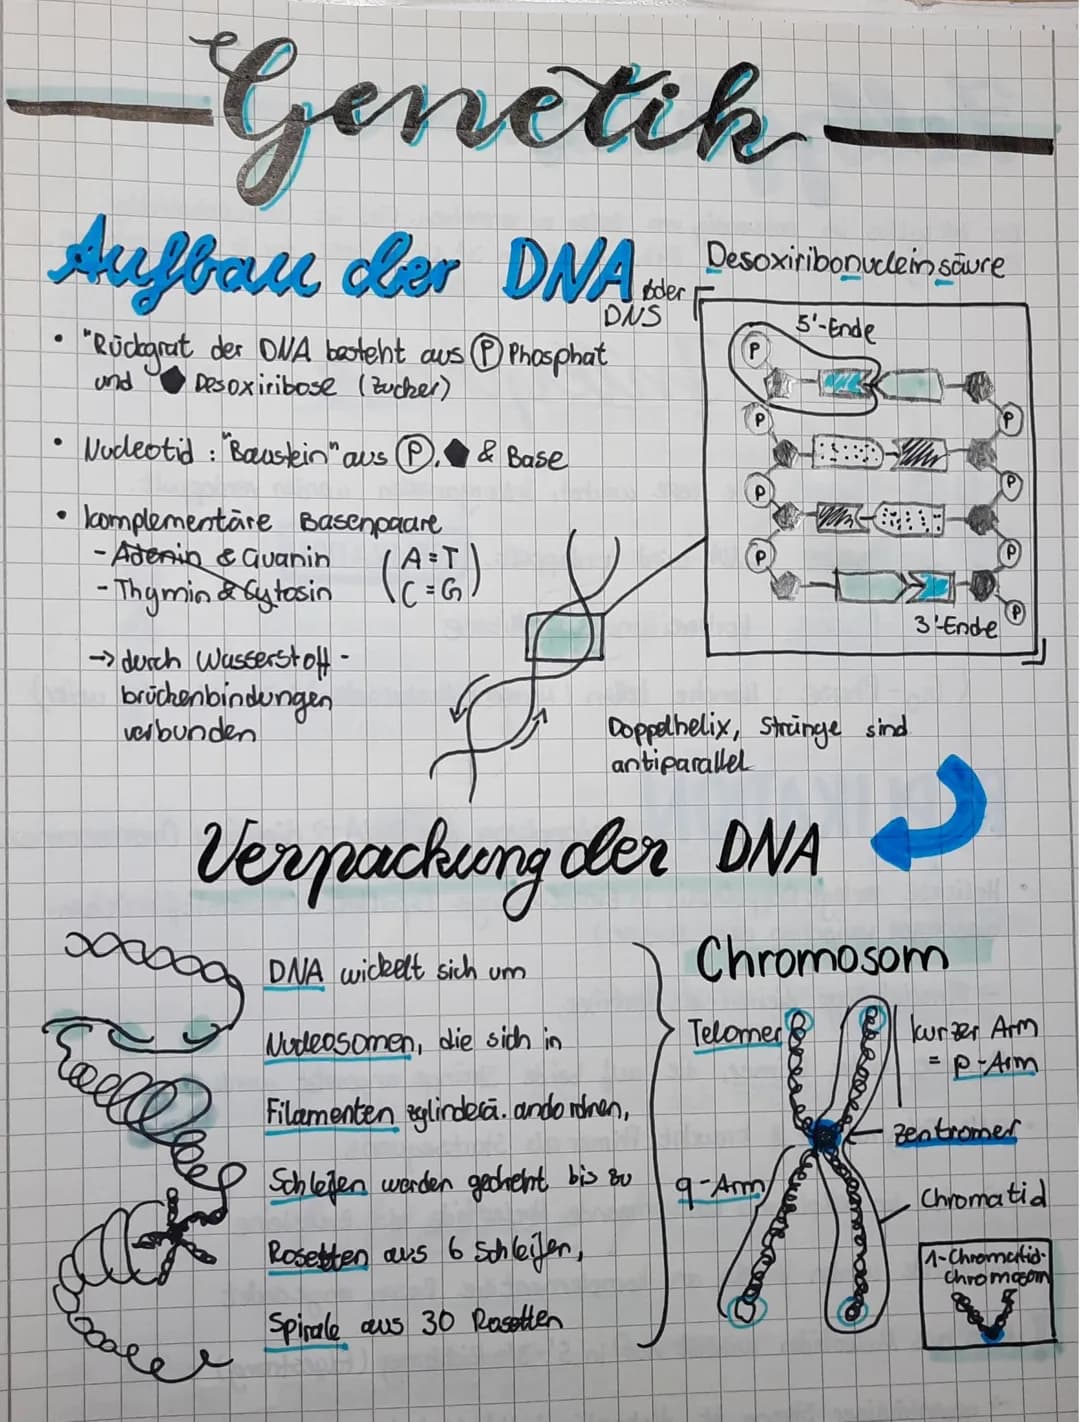 Genetik
Aufbau der DNA oder
DNS
Desoxiribonucleinsäure
• "Rückgrat der DNA besteht aus Ⓟ Phosphat
und ⬟ Desoxiribose (Zucker)
• Nucleotid : "Baustein" aus Ⓟ, ⬟ & Base
• komplementäre Basenpaare
- Adenin & Guanin (A=T)
- Thymin & Cytosin (C=G)
→ durch Wasserstoff-
brückenbindungen
verbunden
5'-Ende
P
P
P
P
P
P
P
P
3'-Ende
P
Doppelhelix, Stränge sind
antiparallel
Verpackung der DNA
DNA wickelt sich um
Nucleosomen, die sich in
Filamenten anordnen,
Schleifen werden gedreht bis zu
Rosetten aus 6 Schleifen,
Spirale aus 30 Rosetten
Chromosom
Telomer
kurzer Arm
= p-Arm
Zentromer
q-Arm
Chromatid
1-Chromatid-
Chromosom